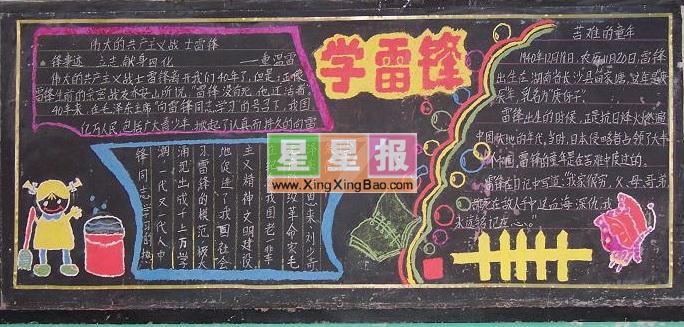 学雷锋
伟大的共产主义战士雷锋
锋事迹 立志献身四化
——重温雷
伟大的共产主义战士雷锋离开我们40年了,但是,正像
雷锋生前的亲密战友乔安山所说,“雷锋没有死,他还活着”
40年来,在毛泽东主席“向雷锋同志学习”的号召下,我国
亿万人民,包括广大青少年,掀起了认真而持久的向雷
锋同志学习的热
潮,一代又一代人中
涌现出成千上万学
习雷锋的模范,极大
地促进了我国社会
主义精神文明建设
我国老一辈
革命家毛
刘少奇
星星报
www.XingXingBao.com
苦难的童年
1940年12月18日,农历11月20日,雷锋
出生在湖南省长沙县
乳名为“庚伢子”
雷锋出生的时候,正是抗日烽火燃遍
的年代,当时,日本侵略者占领了大半
个中国,雷锋的童年是在苦难中度过的。
雷锋在日记中写道:“我家很穷,父、母、哥、弟
死在敌人手中,这血海深仇,我
永远铭记在心。”